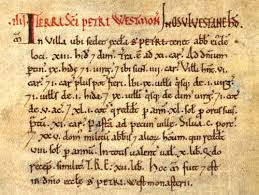 .IIII. TERRA SCI PETRI WESTMON. IN OSULVESTANE HD.
In Villa ubi sedet æccla S PETRI. tenet abb ei9d
loci .xiii. hid 7 dim. Tra .ē. ad .xi. car. Ad dnium
ptin .ix. hidæ 7 i. uirg. 7 ibi sunt .iiii. car. Uilli hnt
.vi. car. 7 i. car
de .i. hida. 7 ix. uilli qsq; de dim uirg. 7 i. cot de .v.
ac. 7 xli. cot qui reddt p ann .xl. sol p ortis suis
ptū .xi. car. Pasta ad pecun uillæ. Silua .c. porc.
7 xxv. dom militū abbis 7 alioꝝ houm. qui reddt
viii. sol p annū. In totis ualent ual .x. lib. Qdo
recep. similit. T.R.E. xii. lib. Hoc m̄ fuit 7 est
in dnio æccle S PETRI Westmonasterii.